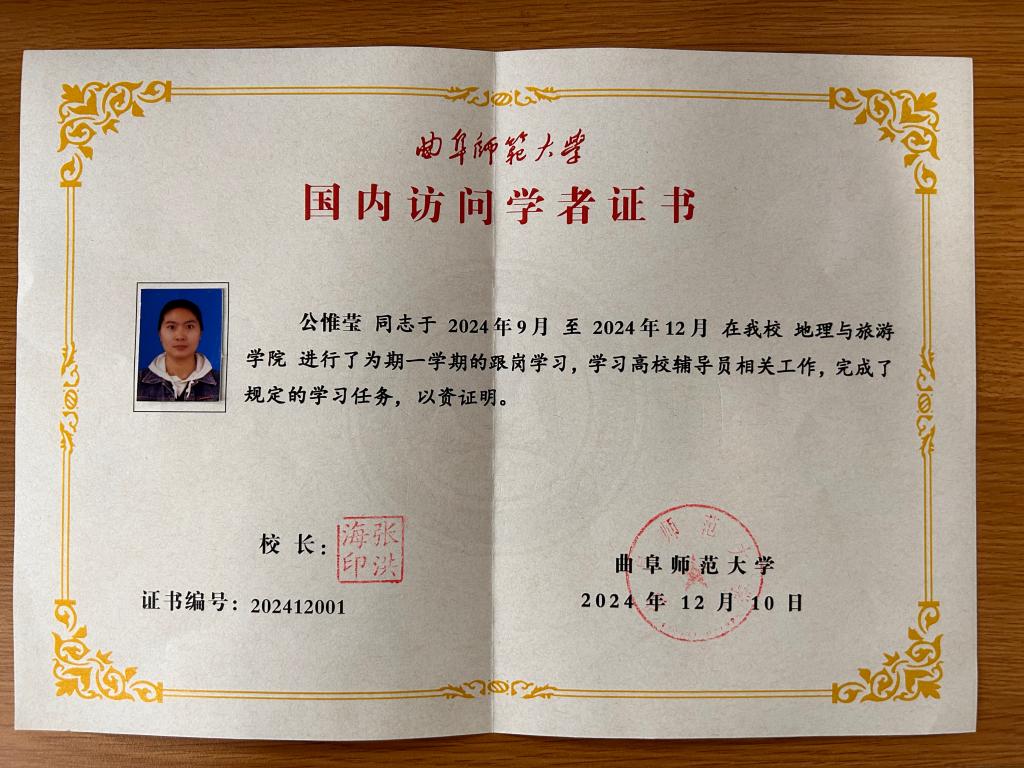 曲阜師範大學
国内访问学者证书
公惟莹 同志于 2024年9月 至 2024年12月 在我校 地理与旅游
学院 进行了为期一学期的跟岗学习，学习高校辅导员相关工作，完成了
规定的学习任务， 以资证明。
校 长：
张洪海印
曲阜师范大学
证书编号：202412001
2024 年 12 月 10 日